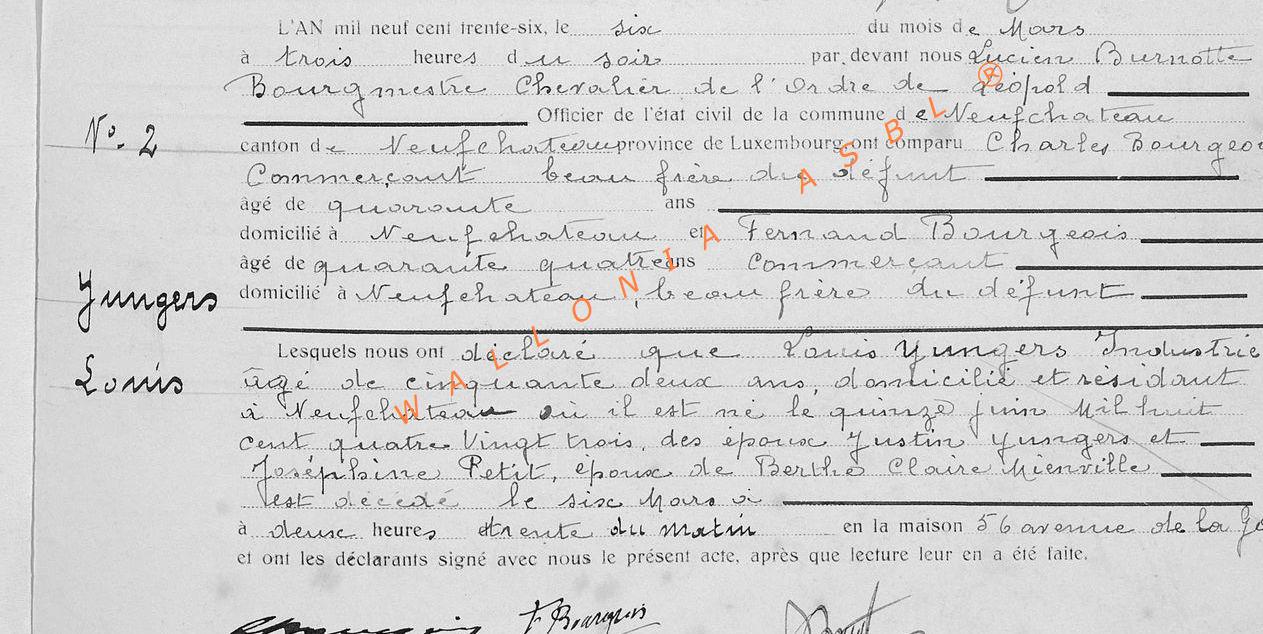 L'AN mil neuf cent trente-six, le six du mois de Mars
à trois heures du soir par devant nous Lucien Burnotte
Bourgmestre Chevalier de l'Ordre de Léopold
Officier de l'état civil de la commune de Neufchateau
No. 2
canton de Neufchateau province de Luxembourg ont comparu Charles Bourgeo
Commerçant beau frère du défunt
âgé de quarante ans
domicilié à Neufchateau et Fernand Bourgeois
âgé de quarante quatre ans commerçant
Yungers
domicilié à Neufchateau, beau frère du défunt
Lesquels nous ont déclaré que Louis Yungers Industrie
Louis
âgé de cinquante deux ans, domicilié et résidant
à Neufchateau où il est né le quinze juin Mil huit
cent quatre Vingt trois, des époux Justin Yungers et
Joséphine Petit, époux de Berthe Claire Mienville
est décédé le six Mars à
à deux heures trente du matin en la maison 56 avenue de la Ga
et ont les déclarants signé avec nous le présent acte, après que lecture leur en a été faite.
F Bourgeois
WALLONIA ASBL ®